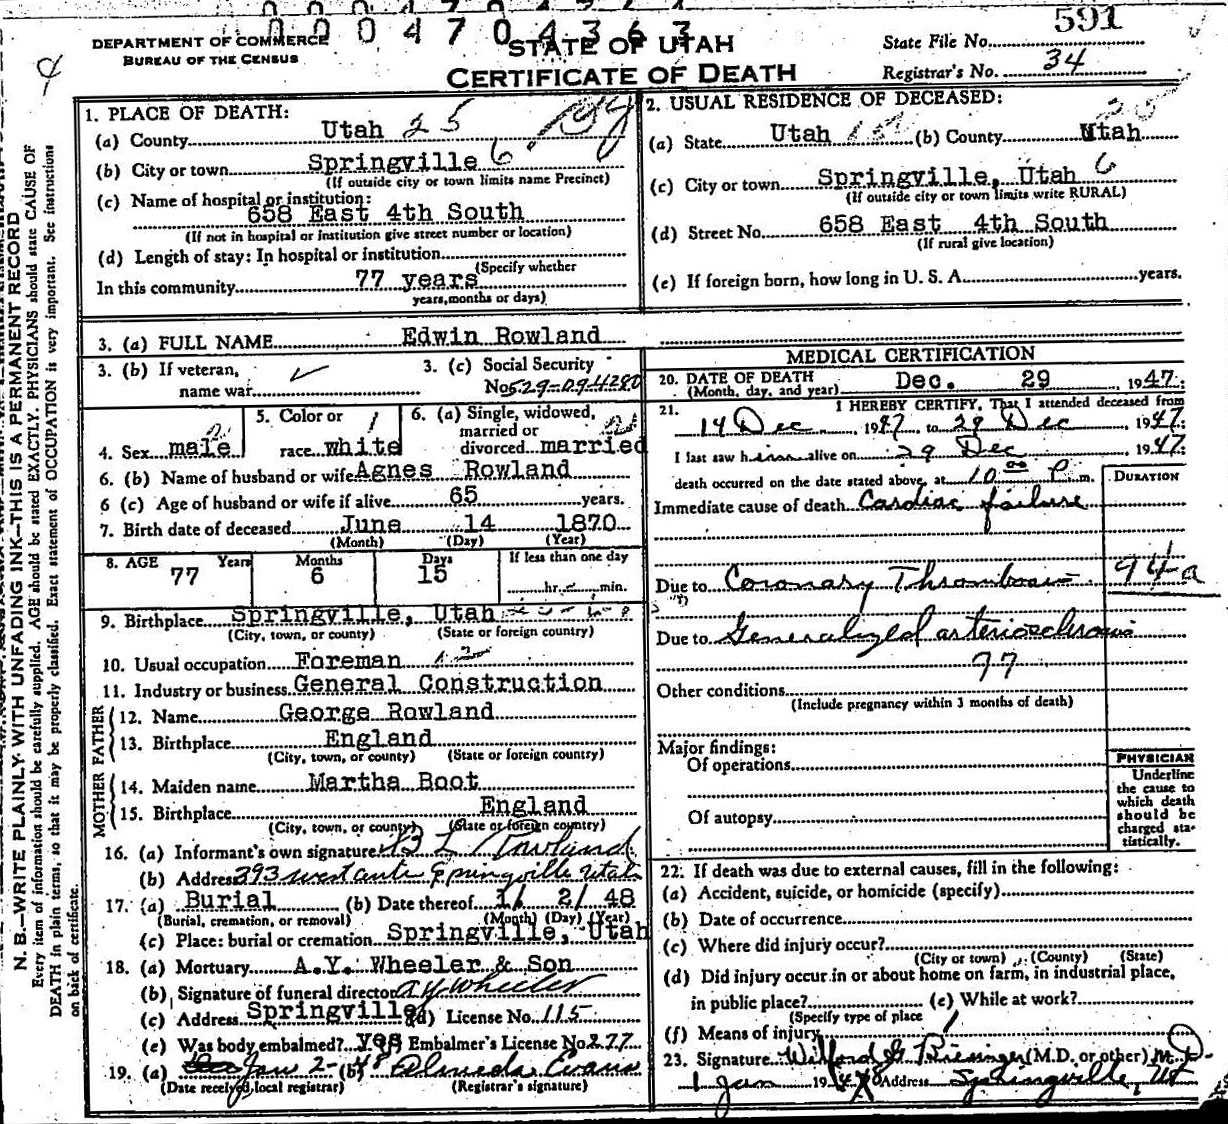 0004704363
591
DEPARTMENT OF COMMERCE
BUREAU OF THE CENSUS
STATE OF UTAH
CERTIFICATE OF DEATH
State File No.
Registrar's No. 34
N. B.—WRITE PLAINLY WITH UNFADING INK—THIS IS A PERMANENT RECORD
Every item of information should be carefully supplied. AGE should be stated EXACTLY. PHYSICIANS should state CAUSE OF
DEATH in plain terms, so that it may be properly classified. Exact statement of OCCUPATION is very important. See instructions
on back of certificate.
1. PLACE OF DEATH:
(a) County Utah 25
(b) City or town Springville 6
(If outside city or town limits name Precinct)
(c) Name of hospital or institution:
658 East 4th South
(If not in hospital or institution give street number or location)
(d) Length of stay: In hospital or institution
(Specify whether
In this community 77 years
years, months or days)
2. USUAL RESIDENCE OF DECEASED:
(a) State Utah (b) County Utah
(c) City or town Springville, Utah 6
(If outside city or town limits write RURAL)
(d) Street No. 658 East 4th South
(If rural give location)
(e) If foreign born, how long in U. S. A. years.
3. (a) FULL NAME Edwin Rowland
3. (b) If veteran,
name war
3. (c) Social Security
No. 529-09-4280
4. Sex male
5. Color or
race white
6. (a) Single, widowed,
married or
divorced married
6. (b) Name of husband or wife Agnes Rowland
6 (c) Age of husband or wife if alive 65 years.
7. Birth date of deceased June 14 1870
(Month) (Day) (Year)
8. AGE Years Months Days If less than one day
77 6 15 hr. min.
9. Birthplace Springville, Utah
(City, town, or county) (State or foreign country)
10. Usual occupation Foreman
11. Industry or business General Construction
FATHER
12. Name George Rowland
13. Birthplace England
(City, town, or county) (State or foreign country)
MOTHER
14. Maiden name Martha Boot
15. Birthplace England
(City, town, or county) (State or foreign country)
16. (a) Informant's own signature B L Rowland
(b) Address 393 west Springville Utah
17. (a) Burial (b) Date thereof 1/ 2/ 48
(Burial, cremation, or removal) (Month) (Day) (Year)
(c) Place: burial or cremation Springville, Utah
18. (a) Mortuary A.Y. Wheeler & Son
(b) Signature of funeral director A Y Wheeler
(c) Address Springville (d) License No. 115
(e) Was body embalmed? yes Embalmer's License No. 277
19. (a) Jan 2-48 (b) Almeda Evans
(Date received local registrar) (Registrar's signature)
MEDICAL CERTIFICATION
20. DATE OF DEATH Dec. 29, 1947.
(Month, day, and year)
21. I HEREBY CERTIFY, That I attended deceased from
14 Dec, 1947 to 29 Dec 1947.
I last saw him alive on 29 Dec 1947.
death occurred on the date stated above, at 10 00 P m.
DURATION
Immediate cause of death Cardiac failure
Due to Coronary Thrombosis 94a
Due to Generalized arteriosclerosis
77
Other conditions
(Include pregnancy within 3 months of death)
Major findings:
Of operations
Of autopsy
PHYSICIAN
Underline
the cause to
which death
should be
charged sta-
tistically.
22. If death was due to external causes, fill in the following:
(a) Accident, suicide, or homicide (specify)
(b) Date of occurrence
(c) Where did injury occur?
(City or town) (County) (State)
(d) Did injury occur in or about home on farm, in industrial place,
in public place? (e) While at work?
(Specify type of place
(f) Means of injury
23. Signature (M.D. or other) M.D.
1 Jan 1948 Address Springville, Ut